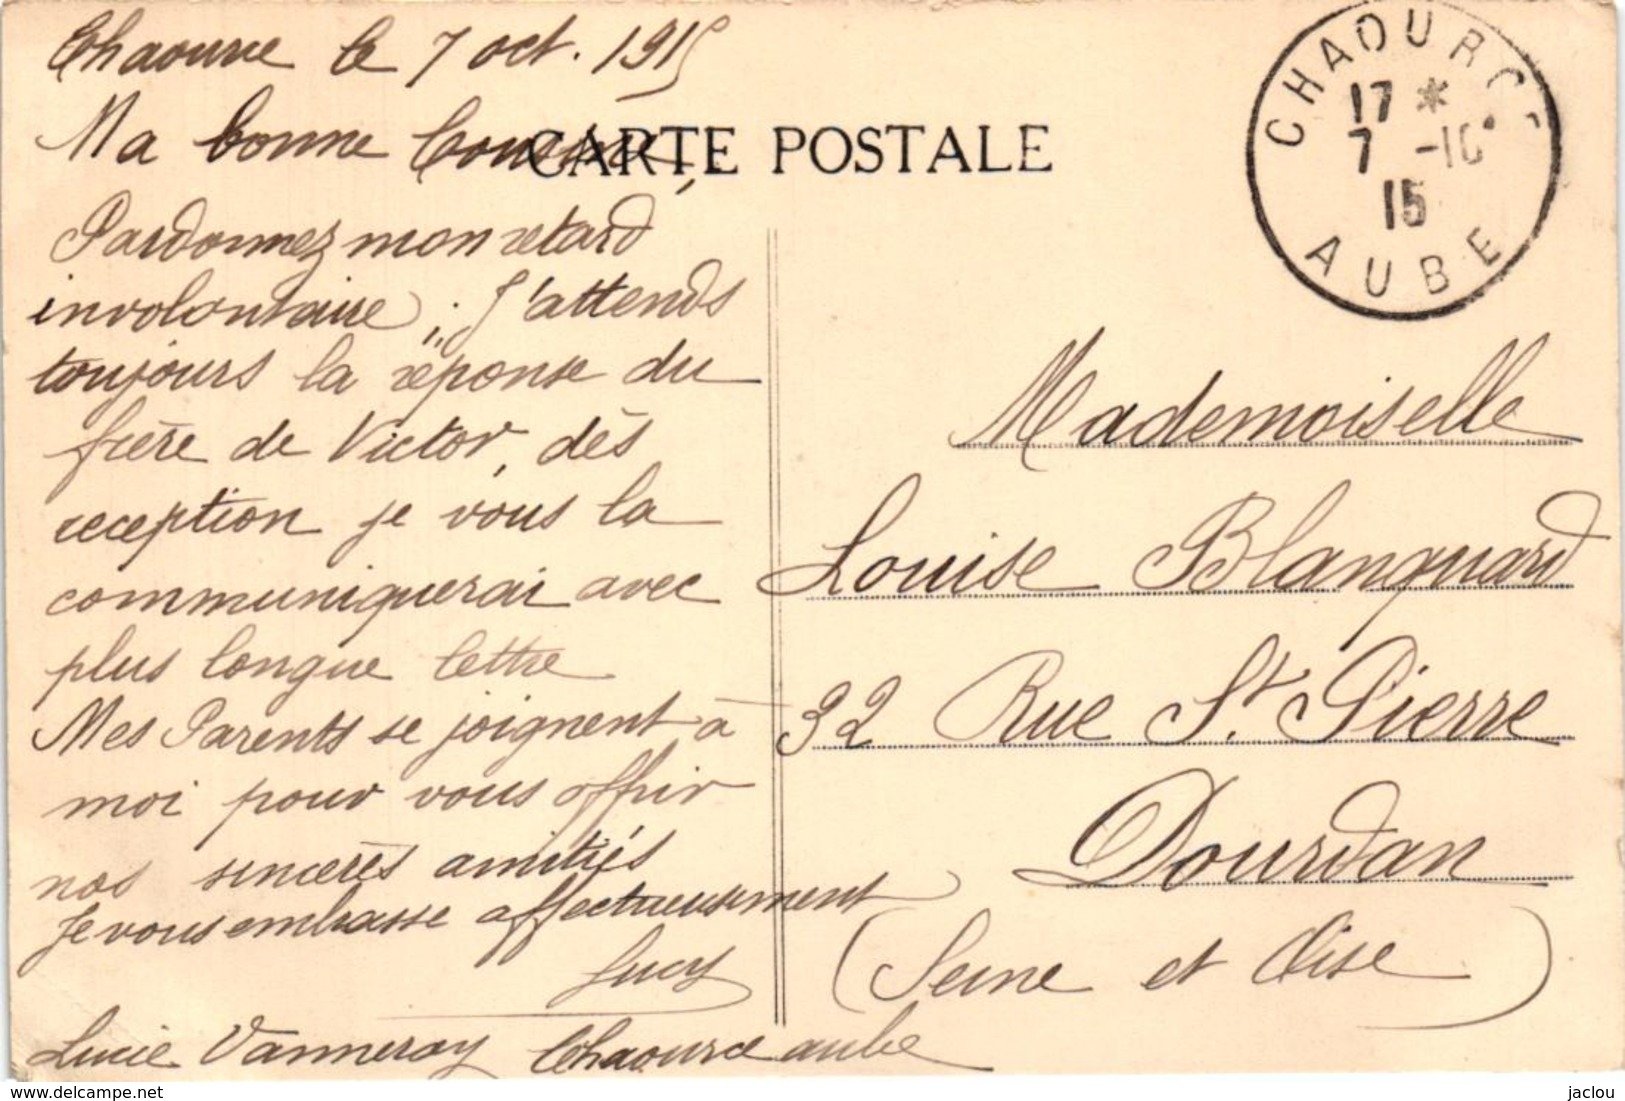 Chaource le 7 oct. 1915
Ma bonne Cousine,
CARTE POSTALE
Pardonnez mon retard
involontaire ; J'attends
toujours la réponse du
frère de Victor, dès
reception je vous la
communiquerai avec
plus longue lettre
Mes Parents se joignent à
moi pour vous offrir
nos sincères amitiés
Je vous embrasse affectueusement
Lucy
Lucie Vanneroy Chaource aube
CHAOURCE
17 *
7 -10
15
AUBE
Mademoiselle
Louise Blanquard
32 Rue St. Pierre
Dourdan
(Seine et Oise)
delcampe.net
jaclou